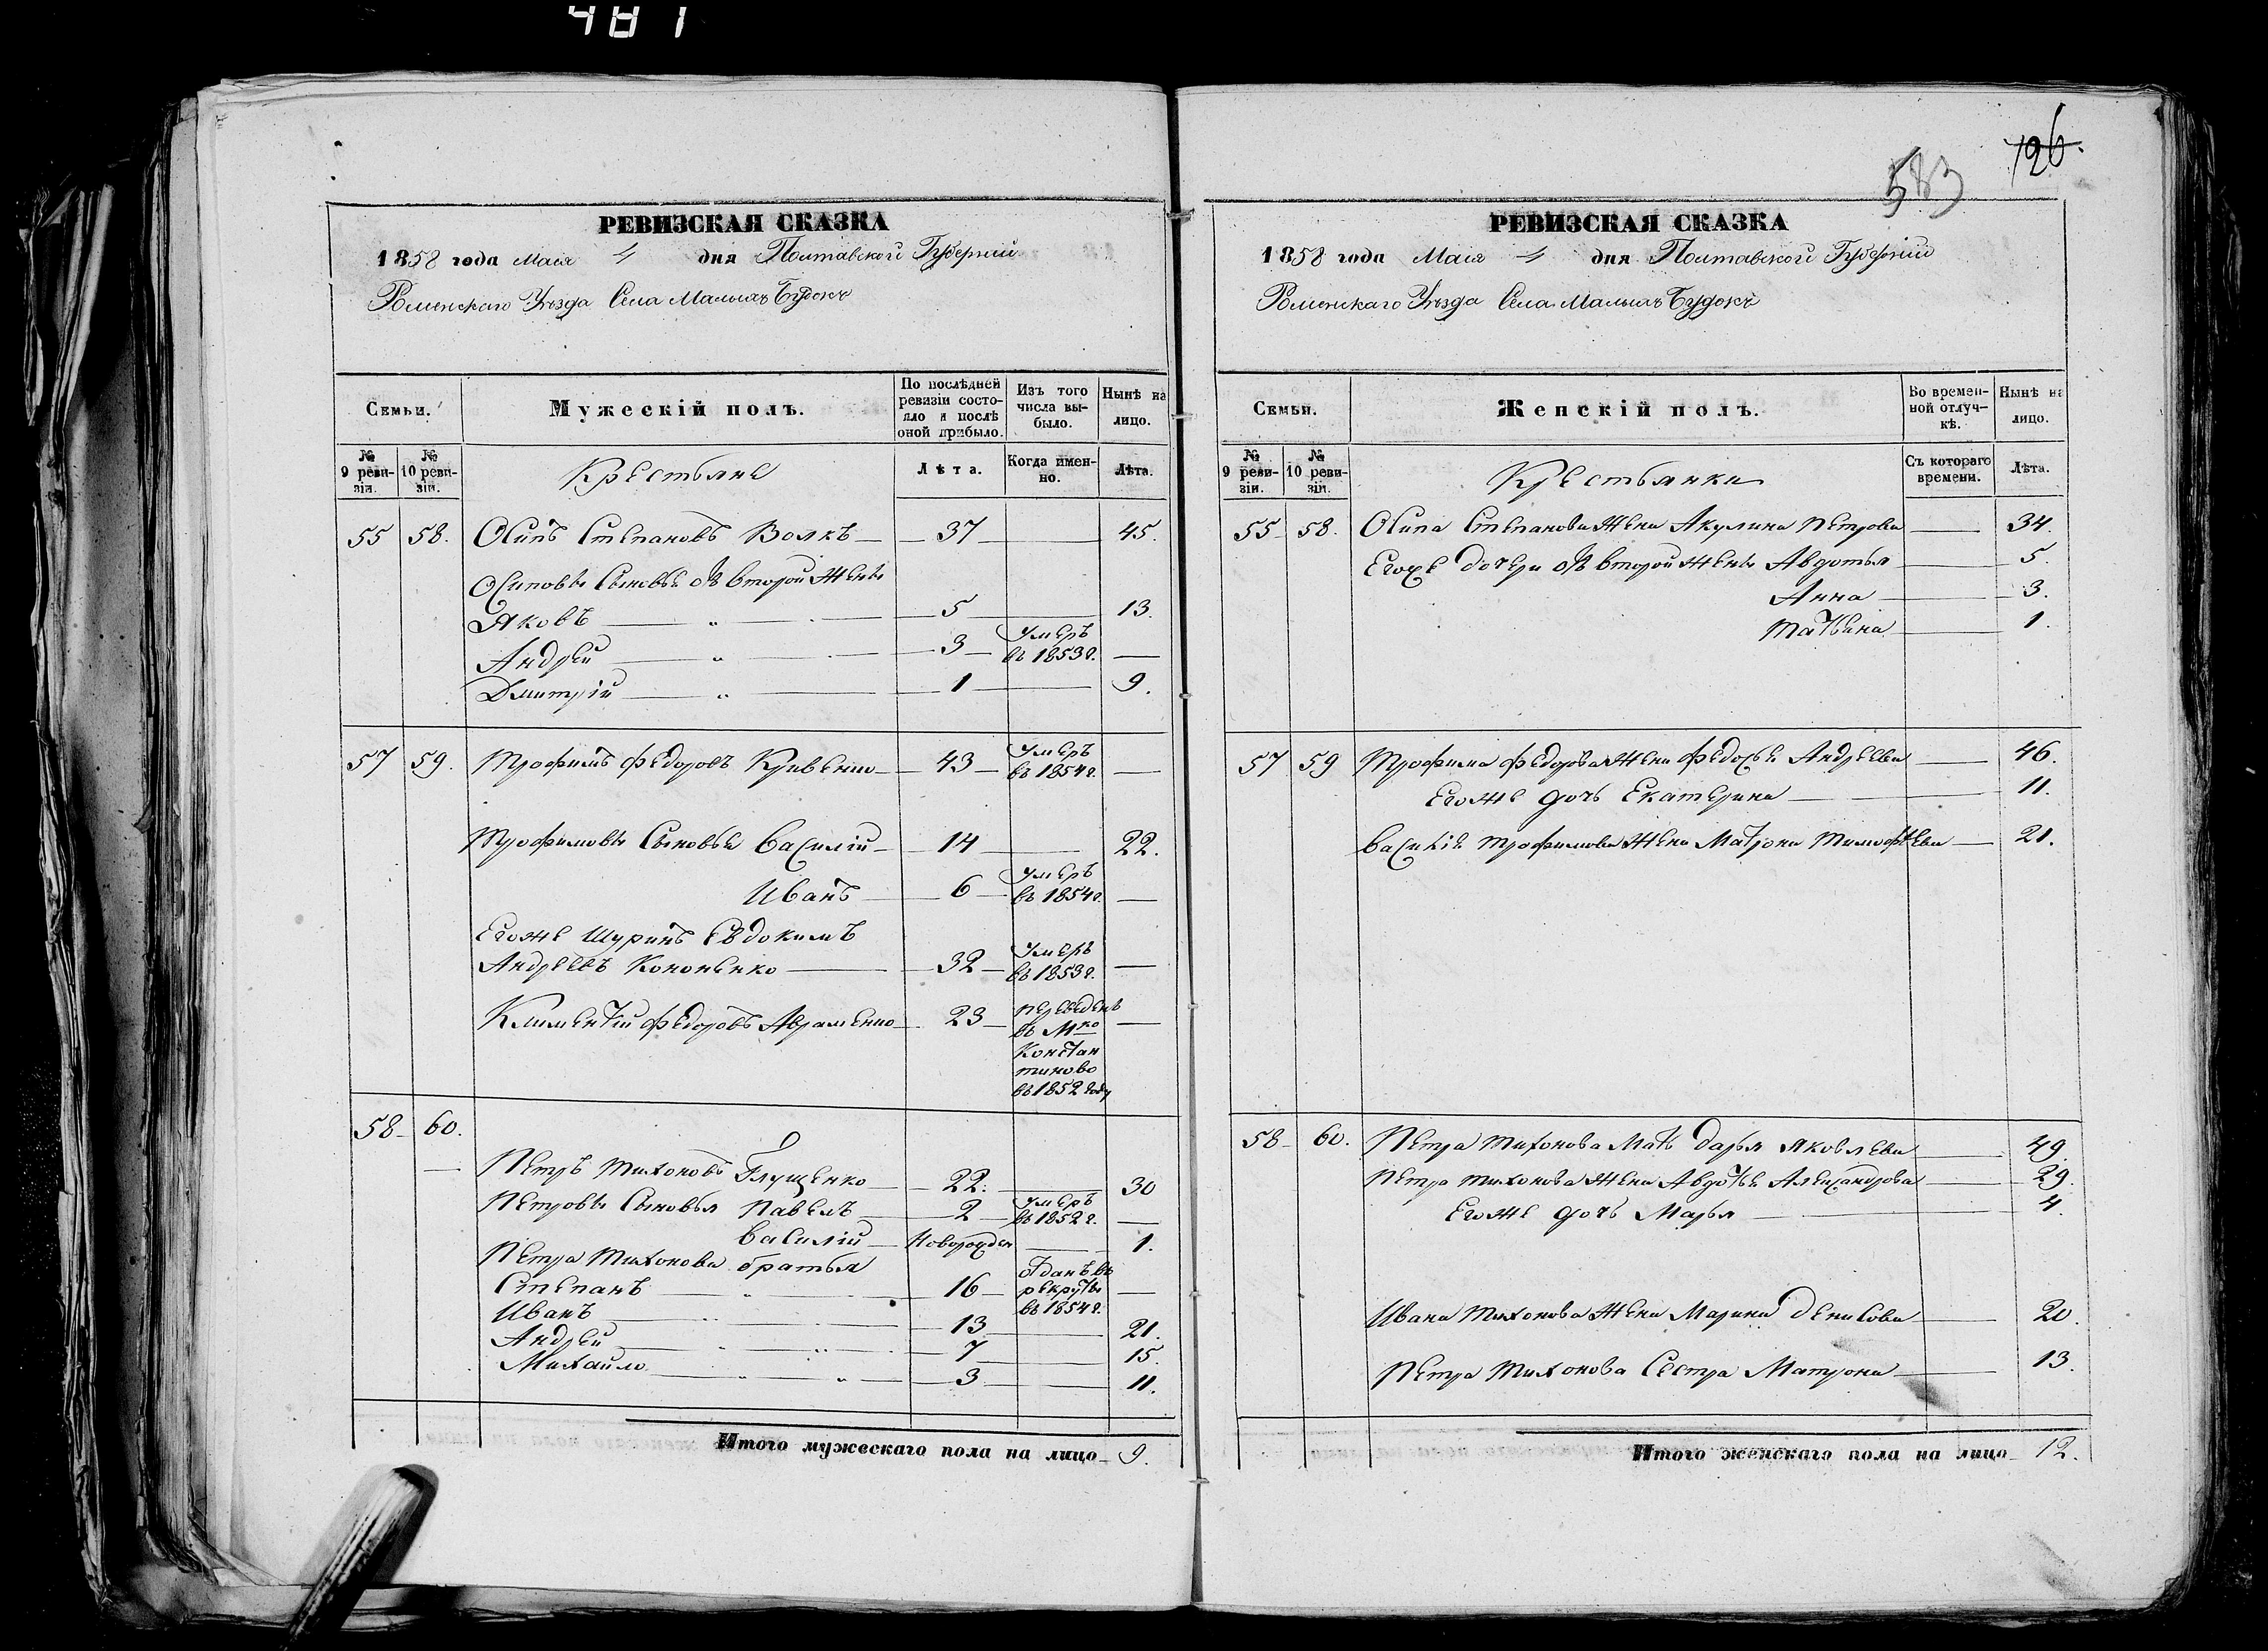 481
РЕВИЗСКАЯ СКАЗКА
1858 года Маія 4 дня Полтавской Губерніи
Роменскаго Уѣзда Села Малыхъ Будокъ
Семьи.
Мужескій полъ.
По послѣдней ревизіи состояло и послѣ оной прибыло.
Изъ того числа выбыло.
Нынѣ на лицо.
№ 9 ревизіи.
№ 10 ревизіи.
Крестьяне
Лѣта.
Когда именно.
Лѣта.
55 58. Осипъ Степановъ Волкъ 37 45.
Осиповы Сыновья отъ второй жены
Яковъ 5 13.
Андрей 3 Умеръ въ 1853г.
Дмитрій 1 9.
57 59. Трофимъ Федоровъ Кривенко 43 Умеръ въ 1854г.
Трофимовы Сыновья Василій 14 22.
Иванъ 6 Умеръ въ 1854г.
Егоже Шуринъ Евдокимъ
Андреевъ Кононенко 32 Умеръ въ 1853г.
Климентій Федоровъ Авраменко 23 переведенъ
въ Мко
Констан
тиново
въ 1852 году
58 60.
Петръ Тихоновъ Глущенко 22. 30
Петровы Сыновья Павелъ 2 Умеръ въ 1852г.
Василій Новорожден 1.
Петра Тихонова братья
Степанъ 16 Отданъ въ рекруты въ 1854г.
Иванъ 13 21.
Андрей 7 15.
Михайло 3 11.
Итого мужескаго пола на лицо 9.
583 126.
РЕВИЗСКАЯ СКАЗКА
1858 года Маія 4 дня Полтавской Губерніи
Роменскаго Уѣзда Села Малыхъ Будокъ
Семьи.
Женскій полъ.
Во временной отлучкѣ.
Нынѣ на лицо.
№ 9 ревизіи.
№ 10 ревизіи.
Крестьянки
Съ котораго времени.
Лѣта.
55 58. Осипа Степанова Жена Акулина Петрова 34.
Егоже дочери отъ второй жены Авдотья 5.
Анна 3.
Татьяна 1.
57 59 Трофима Федорова Жена Федосья Андреева 46.
Егоже дочь Екатерина 11.
Василія Трофимова Жена Матрона Тимофѣева 21.
58 60. Петра Тихонова Мать Дарья Яковлева 49.
Петра Тихонова Жена Авдотья Александрова 29.
Егоже дочь Марья 4.
Ивана Тихонова Жена Марина Денисова 20.
Петра Тихонова Сестра Матрона 13.
Итого женскаго пола на лицо 12.